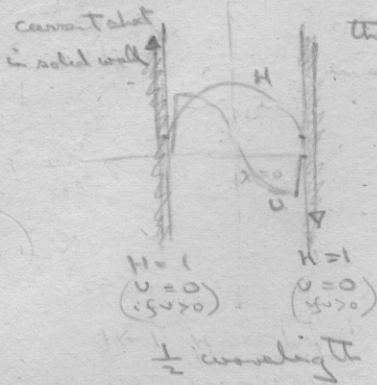 current sheet
in solid wall
th
H
λ=0
U
H = 1
U = 0
(if ν>0)
H = 1
U = 0
(if ν>0)
1/2 wavelength